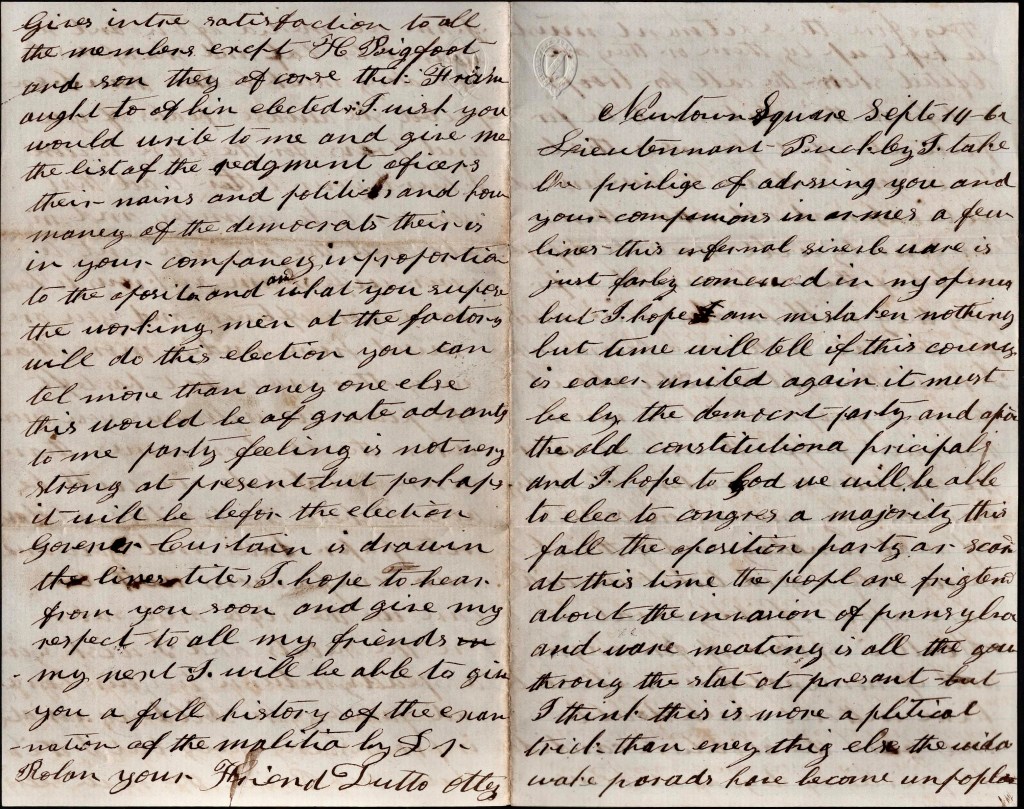 Newtown Square Septe 14-62
Lieutennant Buckby I take
the privlige of adrssing you and
your companions in armes a few
lines this infernal siverle ware is
just farley comenced in my
but I hope I am mistaken nothing
but time will tell if this
is eaver united again it must
be by the democrt party and
the old constitutiona pricipals
and I hope to God we will be able
to elec to congres a majority this
fall the oposition party ar
at this time the peopl are frigtend
about the invaion of
and ware meating is all the
throug the stat at present but
I think this is more a plitical
trick than eney thig else the wida
wake parads have become
Gives intre satisfaction to all
the members exept H Bigfoot
and son they of corse
ought to of bin elected I wish you
would write to me and give me
the list of the redgment oficers
their nains and politics and how
maney of the democrats their is
in your companey in proportion
to the and and what you supose
the working men at the factory
will do this election you can
tel more than aney one else
this would be of grate
to me party feeling is not very
strong at present but perhaps
it will be befor the election
Govener Curtain is drawin
the lines tite I hope to hear
from you soon and give my
respect to all my friends in
my next I will be able to give
you a full history of the exam
nation of the malitia by
Rolan your Friend Dutto Otley